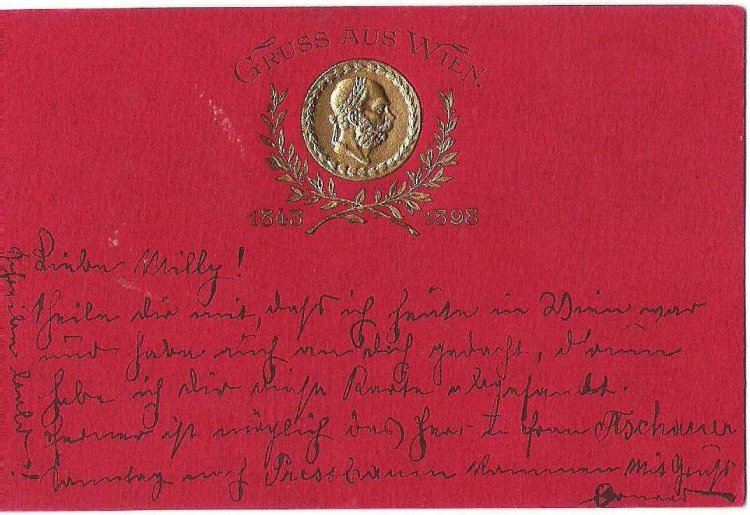 GRUSS AUS WIEN.
1848 1898
Liebe Milly!
theile dir mit, daß ich heute in Wien war
und habe auch an dich gedacht, d'rum
habe ich dir diese Karte abgesandt.
Ferner ist möglich das Herr u Frau Aschauer
Samstag nach Pressbaum kommen Mit Gruß